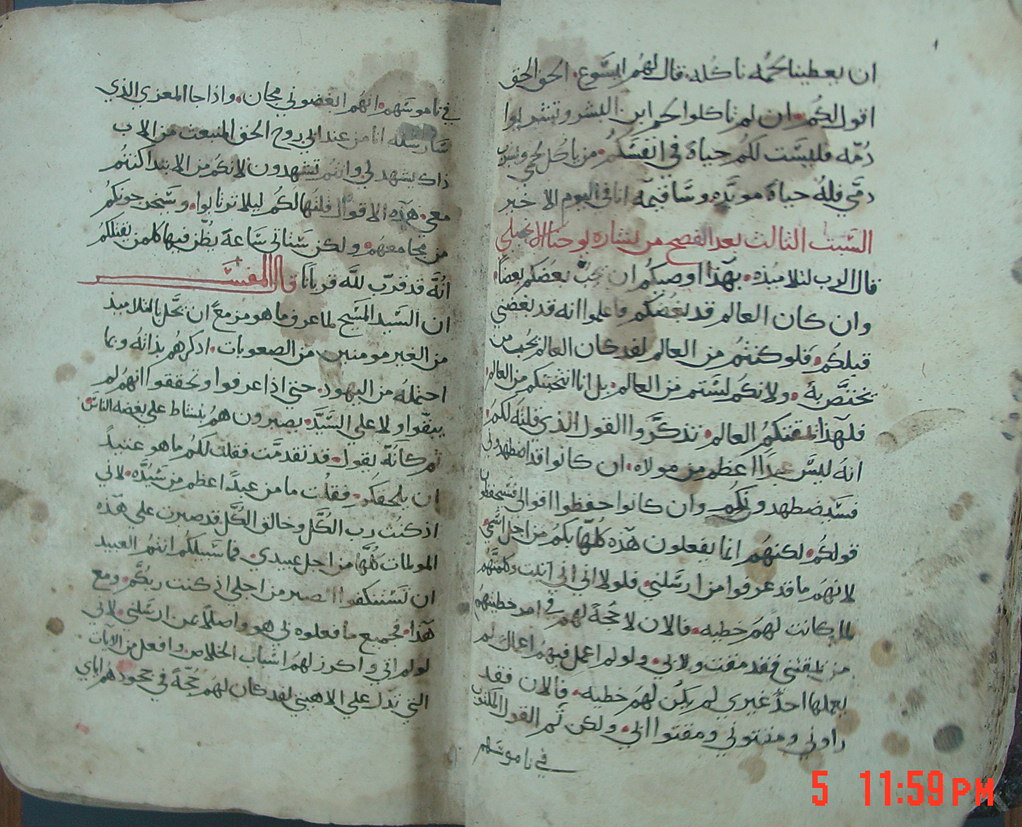 ان يعطينا لحمه ناكله. قال لهم ايسوع. الحق الحق
اقول لكم. ان لم تاكلوا لحم ابن البشر وتشربوا
دمه فليست لكم حياة في انفسكم. من ياكل لحمي ويشرب
دمي فله حياة موبده. وساقيمه انا في اليوم الاخير
السبت الثالث بعد الفصح من بشارة يوحنا الانجيلي
قال الرب لتلاميذه. بهذا اوصيكم ان يحب بعضكم بعضا
وان كان العالم قد يغضكم فاعلموا انه قد يغضني
قبلكم. فلو كنتم من العالم لقد كان العالم يحب من
يختص به. ولانكم لستم من العالم. بل انا انتخبتكم من العالم
فلهذا يمقتكم العالم. تذكروا القول الذي قلته لكم.
انه ليس عبدا اعظم من مولاه. ان كانوا قد اضطهدوني
فسيضطهدونكم. وان كانوا حفظوا اقوالي فسيحفظون
قولكم. لكنهم انما يفعلون هذه كلها بكم من اجل اسمي
لانهم ما قد عرفوا من ارسلني. فلولا اني اتيت وكلمتهم
لما كانت لهم خطيه. فالان لا حجة لهم في امر خطيتهم
من يمقتني فقد مقت ولابي. ولو لم اعمل فيهم اعمال لم
يعملها احد غيري لم يكن لهم خطيه. فالان فقد
راوني ومقتوني ومقتوا ابي. ولكن ثم القول المكتوب
في ناموسهم
في ناموسهم. انهم ابغضوني مجان. واذا جا المعزي الذي
سارسله انا من عند ابي روح الحق المنبعث من الاب
ذاك يشهد لي وانتم تشهدون لانكم من الابتدا كنتم
معي. هذه الاقوال قلتها لكم ليلا ترتابوا. وسيخرجونكم
من مجامعهم. ولكن ستاتي ساعة يظن فيها كلمن يقتلكم
انه قد قرب لله قربانا قال المفسر
ان السيد المسيح لما عرف ما هو مزمع ان يحل بالتلاميذ
من الغير مومنين من الصعوبات. اذكرهم بذاته وبما
احتمله من اليهود. حتى اذا عرفوا وتحققوا انهم لم
يبقوا ولا على السيد. يصيرون هم بنشاط على بغضه الناس
ثم كانه يقول. قد تقدمت فقلت لكم ما هو عتيد
ان يلحقكم. فقلت ما من عبد اعظم من سيده. لاني
اذ كنت رب الكل وخالق الكل قد صبرت على هذه
المولمات كلها من اجل عبيدي. فما سبيلكم انتم العبيد
ان تستنكفوا الصبر من اجلي اذ كنت ربكم. ومع
هذا فجميع ما فعلوه لي هو واصلا عن ارسلني. لاني
لو لم اتي واكرز لهم اسباب الخلاص وافعل من الايات
التي تدل على الاهيتي لقد كان لهم حجة في جحودهم اياي
5 11:59 PM